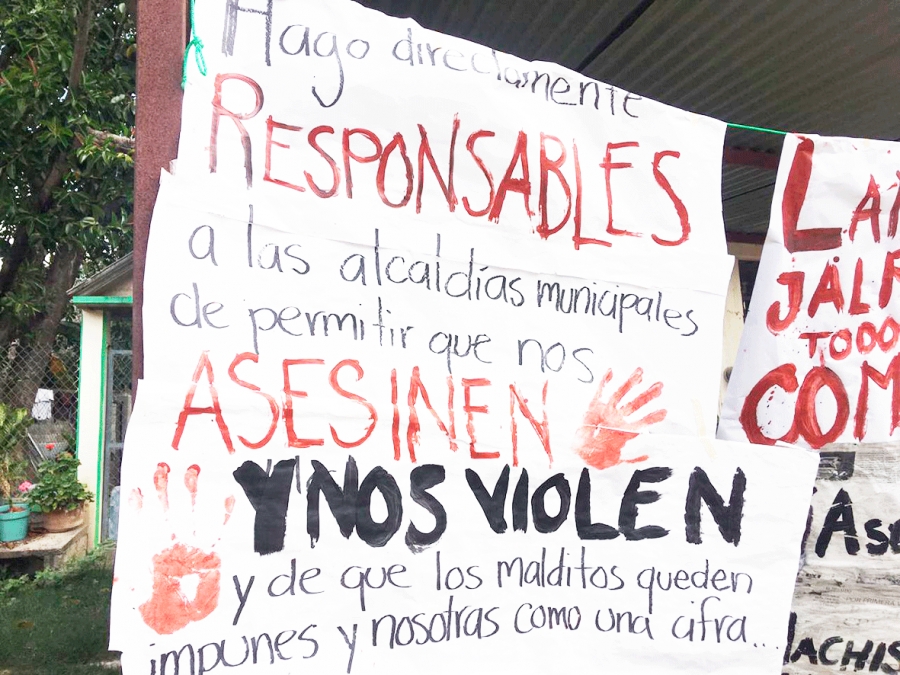 Hago directamente
RESPONSABLES
a las alcaldías municipales
de permitir que nos
ASESINEN
Y NOS VIOLEN
y de que los malditos queden
impunes y nosotras como una cifra...
TODO